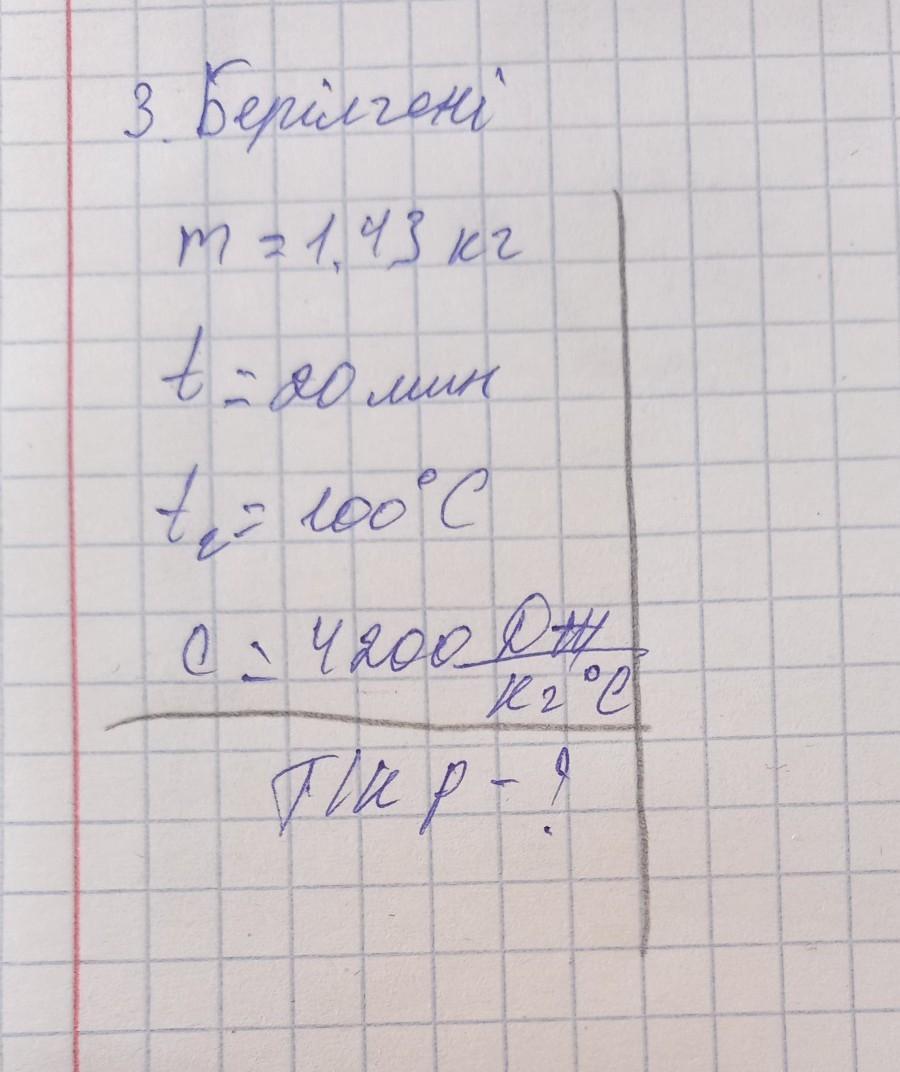 3. Берілгені
m = 1.43 кг
t = 20 мин
t₂ = 100°C
c = 4200 Дж
кг °C
Т/к p - ?